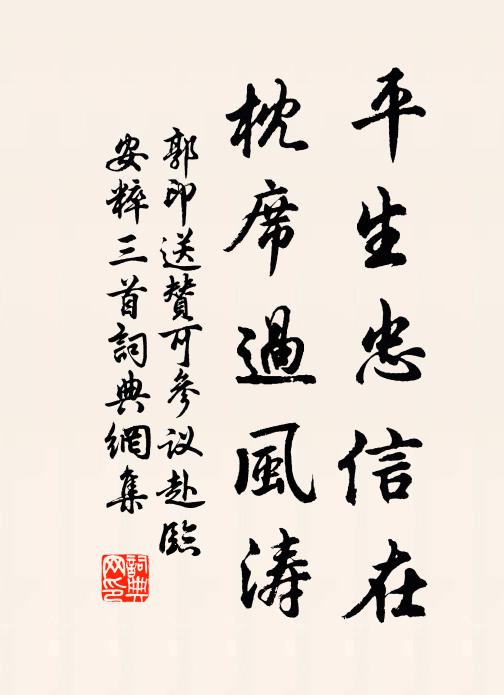 平生忠信在
枕席過風涛
郭印送賛可參议赴臨
安粹三首詞典網集
詞典网印